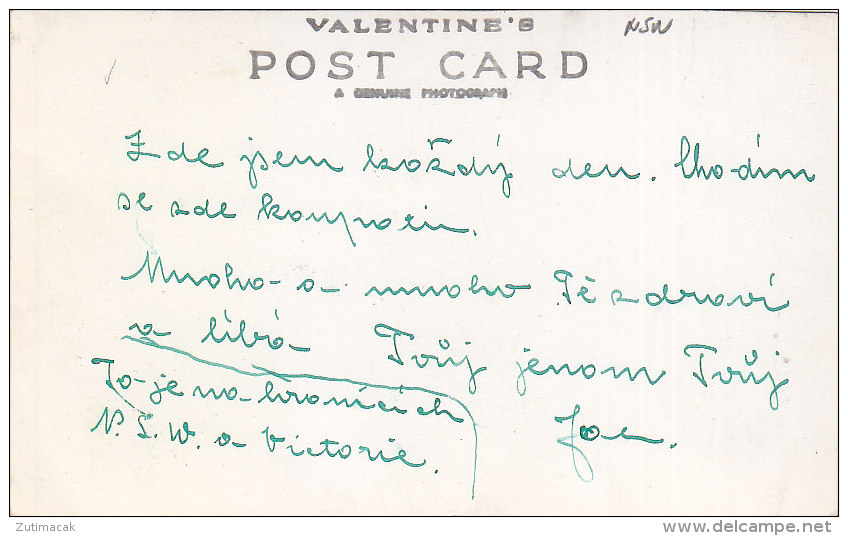 VALENTINE'S
NSW
POST CARD
A GENUINE PHOTOGRAPH
Zde jsem každý den. Chodím
se zde koupati.
Mnoho a mnoho Tě zdraví
a líbá Tvůj jenom Tvůj
To je na hranicích
N. S. W. a Victorie.
Zutimacak
delcampe.net